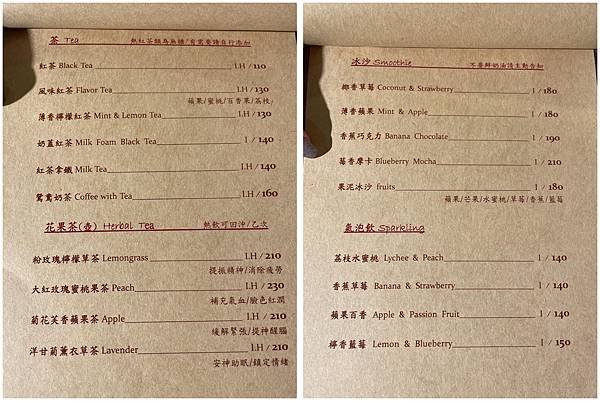 茶 Tea 熱紅茶類為無糖/有需要請自行添加
紅茶 Black Tea I.H / 110
風味紅茶 Flavor Tea I.H / 130
蘋果/蜜桃/百香果/荔枝/
薄香檸檬紅茶 Mint & Lemon Tea I.H / 130
奶蓋紅茶 Milk Foam Black Tea I / 140
紅茶拿鐵 Milk Tea I.H / 140
鴛鴦奶茶 Coffee with Tea I.H / 160
花果茶(壺) Herbal Tea 熱飲可回沖/乙次
粉玫瑰檸檬草茶 Lemongrass I.H / 210
提振精神/消除疲勞
大紅玫瑰蜜桃果茶 Peach I.H / 230
補充氣血/臉色紅潤
菊花芙香蘋果茶 Apple I.H / 210
緩解緊張/提神醒腦
洋甘菊薰衣草茶 Lavender I.H / 210
安神助眠/鎮定情緒
冰沙 Smoothie 不要鮮奶油請主動告知
椰香草莓 Coconut & Strawberry I / 180
薄香蘋果 Mint & Apple I / 180
香蕉巧克力 Banana Chocolate I / 190
莓香摩卡 Blueberry Mocha I / 210
果泥冰沙 fruits I / 180
蘋果/芒果/水蜜桃/草莓/香蕉/藍莓
氣泡飲 Sparkling
荔枝水蜜桃 Lychee & Peach I / 140
香蕉草莓 Banana & Strawberry I / 140
蘋果百香 Apple & Passion Fruit I / 140
檸香藍莓 Lemon & Blueberry I / 150